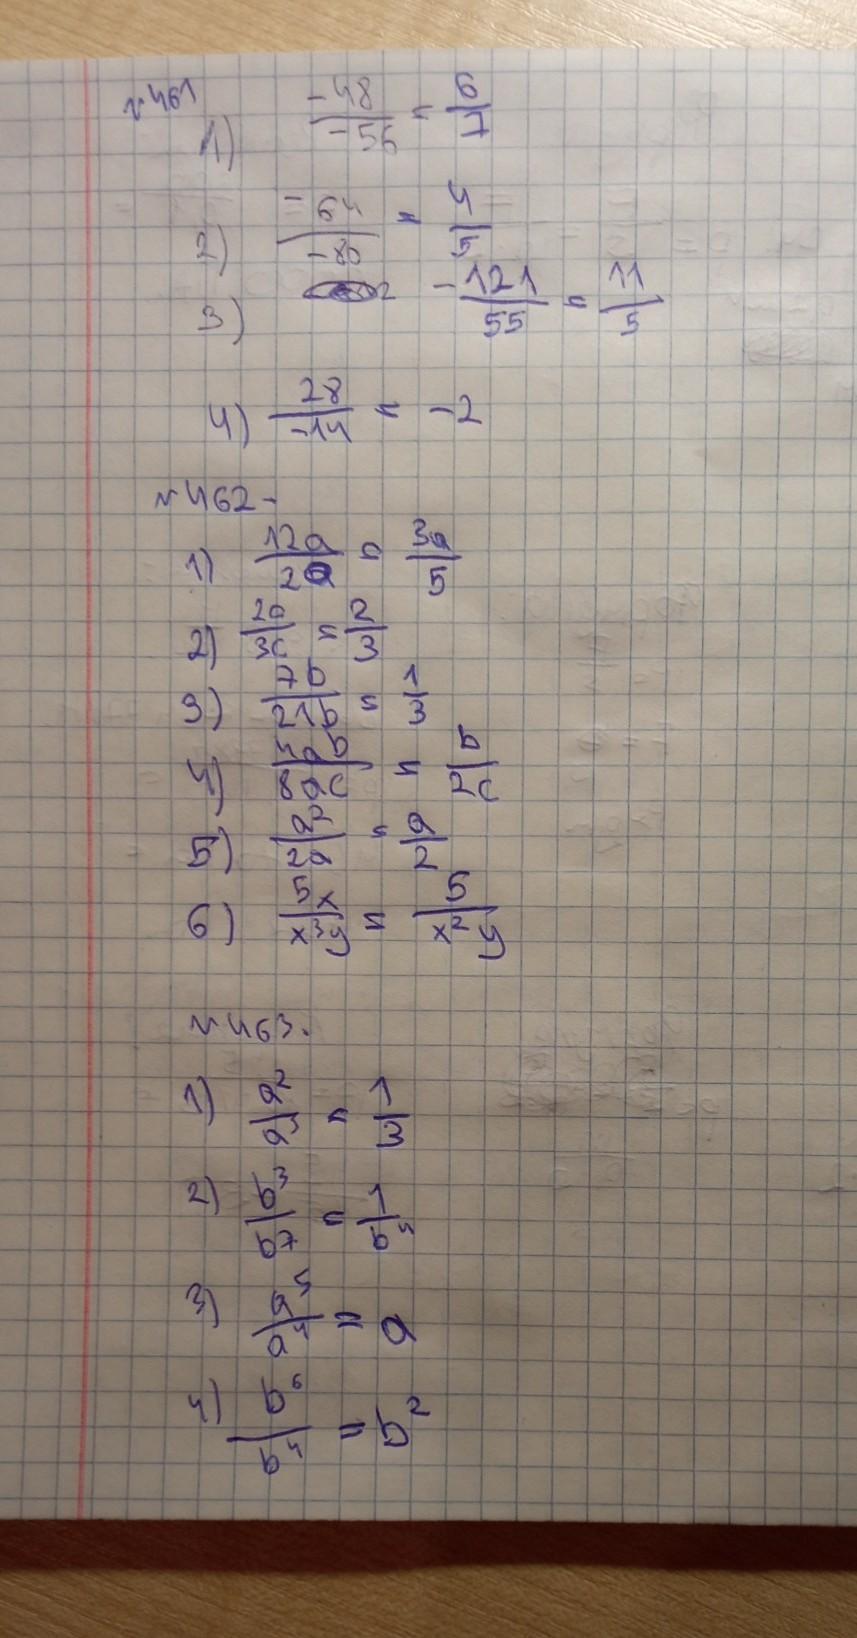 №461
1) -48/-56 = 6/7
2) -64/-80 = 4/5
3) -121/55 = 11/5
4) 28/-14 = -2
№462-
1) 12a/20 = 3a/5
2) 2c/3c = 2/3
3) 7b/21b = 1/3
4) 4ab/8ac = b/2c
5) a²/2a = a/2
6) 5x/x³y = 5/x²y
№463.
1) a²/a³ = 1/3
2) b³/b7 = 1/b⁴
3) a⁵/a⁴ = a
4) b⁶/b⁴ = b²